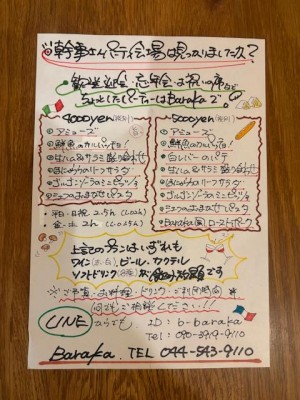 幹事さんパーティ会場は見つかりましたか?
歓送迎会・忘年会・お祝いの席など
ちょっとしたパーティーはBarakaで。
4000yen(税別)
①アミューズ
②鮮魚のカルパッチョ!
③生ハム&サラミ盛り合わせ
⑤ゴルゴンゾーラのミニピッツァ
⑥シェフのおまかせパスタ
5000yen(税別)
①アミューズ
②鮮魚のカルパッチョ!
③白レバーのパテ
④生ハム&サラミ盛り合わせ
⑥ゴルゴンゾーラのミニピッツァ
⑦シェフのおまかせパスタ
⑧Baraka風ローストポーク
平日・日祝 2.5h
金・土 2h
上記のプランはいずれも
ワイン(赤・白)、ビール、カクテル
ソフトドリンク(各種)が飲み放題です
※ご予算・お料理・ドリンク・ご利用時間 等
何でもご相談ください!!
LINEからでも
ID: b-baraka
TEL: 090-3919-9110
Baraka. TEL 044-543-9110